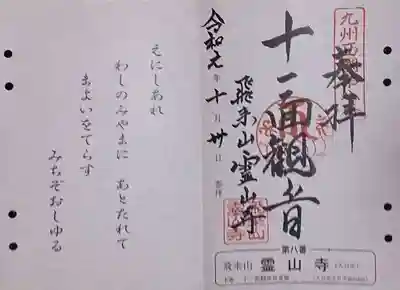 九州西
奉拝
十一面観音
飛来山霊山寺
令和元年十月卅日
参拝
第八番
飛来山 霊山寺
そにしあれ
わしのみやまに あとたれて
まよいをてらす
みちぞおしゆる